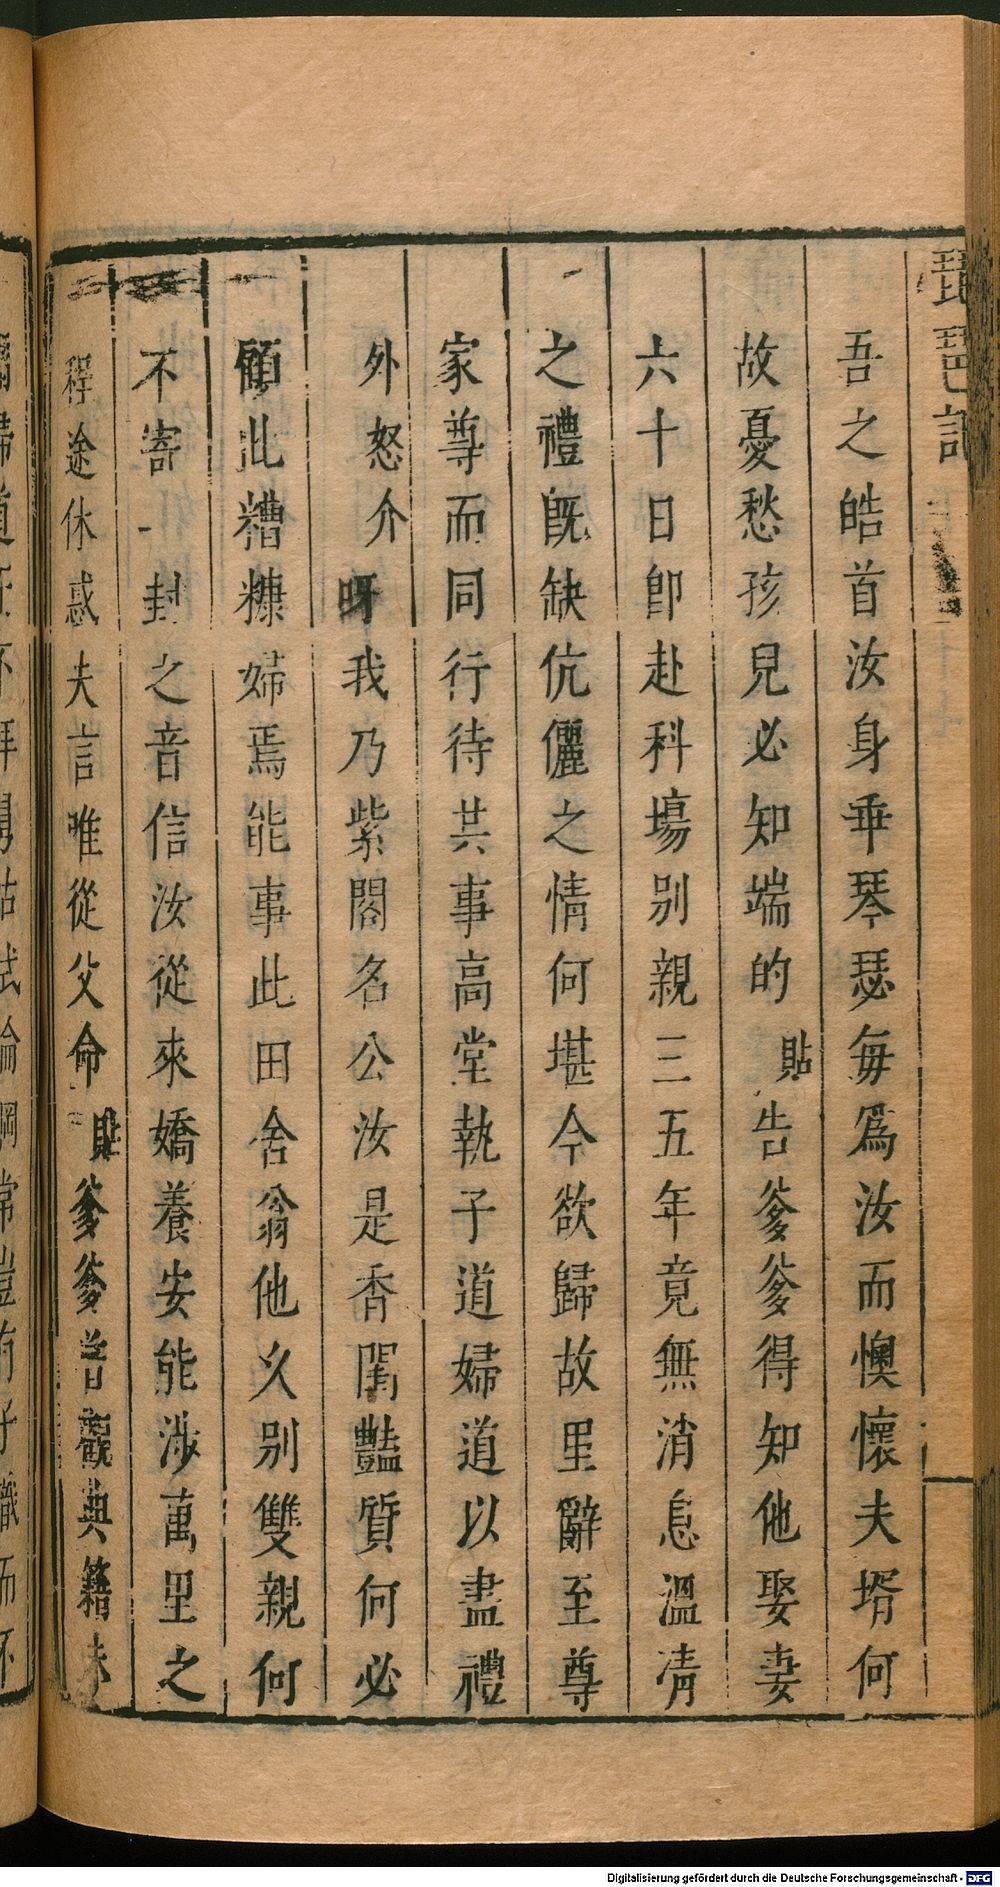 琵琶記
吾之皓首汝身垂琴瑟每爲汝而懊懷夫壻何
故憂愁孩兒必知端的 貼 告爹爹得知他娶妻
六十日卽赴科場別親三五年竟無消息溫凊
之禮旣缺伉儷之情何堪今欲歸故里辭至尊
家尊而同行待共事高堂執子道婦道以盡禮
外怒介 呀 我乃紫閣名公汝是香閨豔質何必
顧此糟糠婦焉能事此田舍翁他久別雙親何
不寄一封之音信汝從來嬌養安能涉萬里之
程途休惑夫言唯從父命 貼 爹爹曾觀典籍未
Digitalisierung gefördert durch die Deutsche Forschungsgemeinschaft - DFG